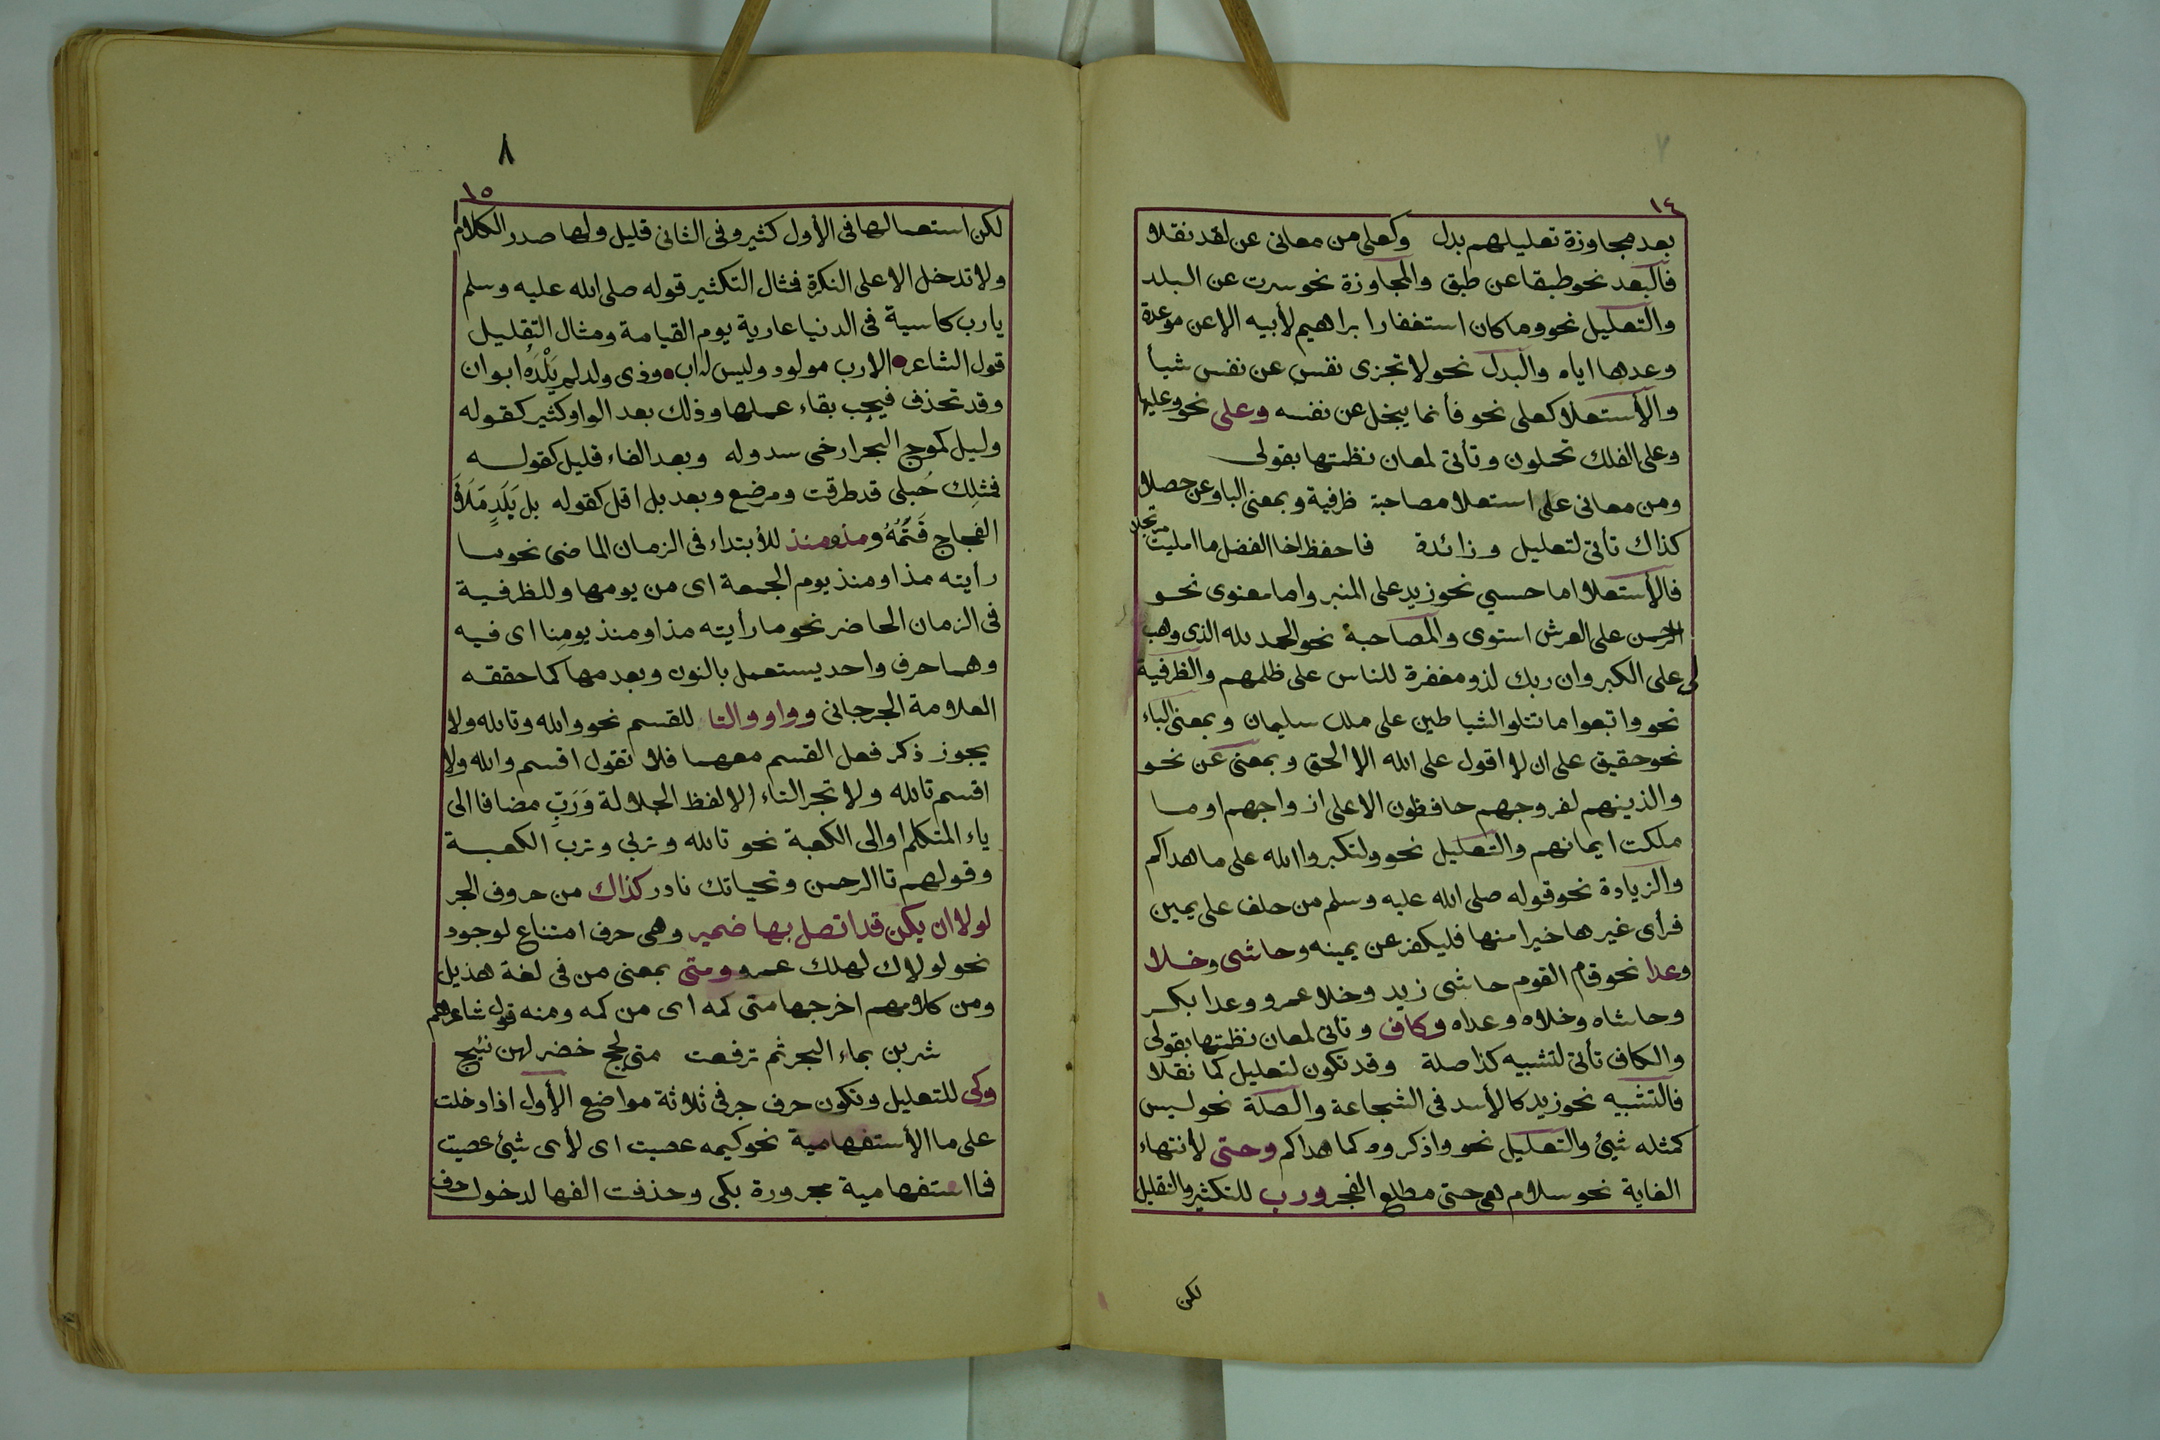 ٧
١٤
بعد مجاوزة تعليلهم بدل وكعلى من معانى عن لقد نقلا
فالبعد نحو طبقا عن طبق والمجاوزة نحو سرت عن البلد
والتعليل نحو وما كان استغفار ابراهيم لأبيه الا عن موعدة
وعدها اياه والبدل نحو لا تجزى نفس عن نفس شيأ
والأستعلا كعلى نحو فأنما يبخل عن نفسه وعلى نحو وعليها
وعلى الفلك تحملون وتأتى لمعان نظمتها بقولى
ومن معانى على استعلا مصاحبة ظرفية وبمعنى البا وعن حصلا
كذاك تأتى لتعليل وزائدة فاحفظ اخا الفضل ما امليت مرتجلا
فالأستعلا اما حسي نحو زيد على المنبر واما معنوى نحو
الرحمن على العرش استوى والمصاحبة نحو الحمد لله الذى وهب
لى على الكبر وان ربك لذو مغفرة للناس على ظلمهم والظرفية
نحو واتبعوا ما تتلو الشياطين على ملك سليمان وبمعنى الباء
نحو حقيق على ان لا اقول على الله الا الحق وبمعنى عن نحو
والذينهم لفروجهم حافظون الا على ازواجهم او ما
ملكت ايمانهم والتعليل نحو ولتكبروا الله على ما هداكم
والزيادة نحو قوله صلى الله عليه وسلم من حلف على يمين
فرأى غيرها خيرا منها فليكفر عن يمينه وحاشى وخلا
وعدا نحو قام القوم حاشى زيد وخلا عمرو وعدا بكر
وحاشاه وخلاه وعداه وكاف وتأتى لمعان نظمتها بقولى
والكاف تأتى لتشبيه كذا صلة وقد تكون لتعليل كما نقلا
فالتشبيه نحو زيد كالأسد فى الشجاعة والصلة نحو ليس
كمثله شيئ والتعليل نحو واذكروه كما هداكم وحتى لأنتهاء
الغاية نحو سلام هى حتى مطلع الفجر ورب للتكثير والتقليل
لكن
٨
١٥
لكن استعمالها فى الأول كثير وفى الثانى قليل ولها صدر الكلام
ولا تدخل الا على النكرة فمثال التكثير قوله صلى الله عليه وسلم
يا رب كاسية فى الدنيا عارية يوم القيامة ومثال التقليل
قول الشاعر الا رب مولود وليس له اب وذى ولد لم يَلْدَهُ ابوان
وقد تحذف فيجب بقاء عملها وذلك بعد الواو كثير كقوله
وليل كموج البحر ارخى سدوله وبعد الفاء قليل كقوله
فمثلِك حُبلى قد طرقت ومرضع وبعد بل اقل كقوله بل بَلَدٍ مَلَأ
الفجاج قَتَمُهُ ومذ ومنذ للأبتداء فى الزمان الماضى نحو ما
رأيته مذ او منذ يوم الجمعة اى من يومها وللظرفية
فى الزمان الحاضر نحو ما رأيته مذ او منذ يومنا اى فيه
وهما حرف واحد يستعمل بالنون وبعدمها كما حققه
العلامة الجرجانى وواو والتاء للقسم نحو والله وتالله ولا
يجوز ذكر فعل القسم معهما فلا تقول اقسم والله ولا
اقسم تالله ولا تجر التاء الا لفظ الجلالة وَرَبِّ مضافا الى
ياء المتكلم او الى الكعبة نحو تالله وتربي وترب الكعبة
وقولهم تا الرحمن وتحياتك نادر كذاك من حروف الجر
لولا ان يكن قد اتصل بها ضمير وهى حرف امتناع لوجود
نحو لولاك لهلك عمرو ومتى بمعنى من فى لغة هذيل
ومن كلامهم اخرجها متى كمه اى من كمه ومنه قول شاعرهم
شربن بماء البحر ثم ترفعت متى لجج خضر لهن نئيج
وكى للتعليل وتكون حرف جر فى ثلاثة مواضع الأول اذا دخلت
على ما الأستفهامية نحو كيمه عصيت اى لأى شيئ عصيت
فما استفهامية مجرورة بكى وحذفت الفها لدخول حرف